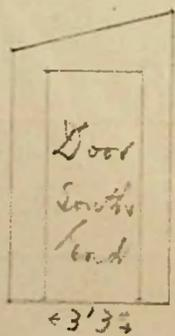 Door
South
End
←3'3→